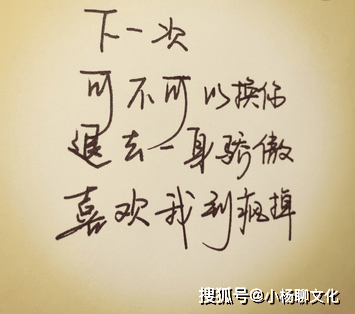 下一次
可不可以换你
退去一身骄傲
喜欢我到疯掉
搜狐号@小杨聊文化